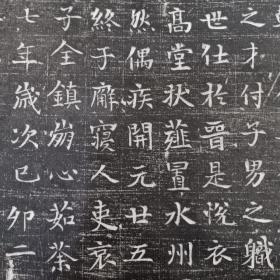 之才付子男之軄
世仕於晉是悅衣
髙堂狀薤置水州
然偶疾開元廿五
終于廨寢人吏哀
子全鎮崩心茹荼
七年歲次己卯二